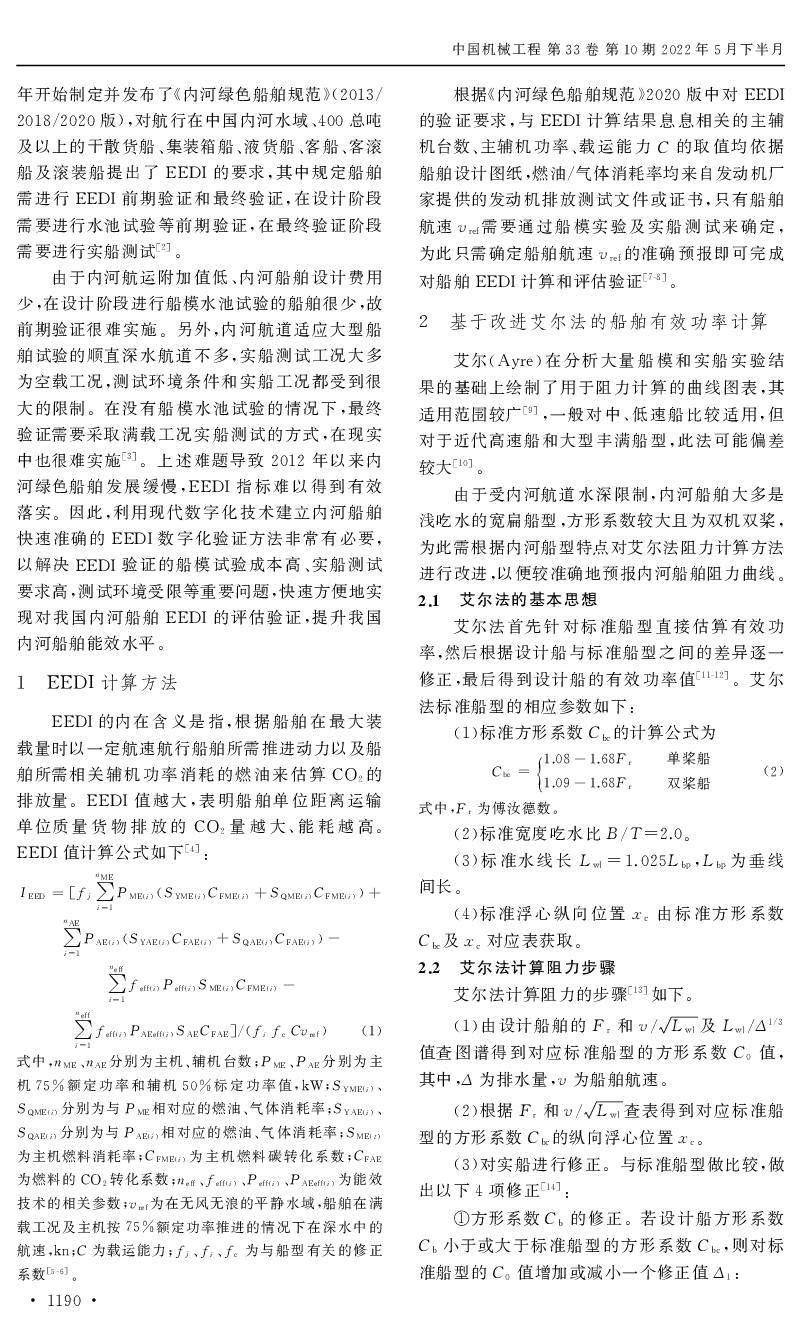 中国机械工程 第 33 卷 第 10 期 2022 年 5 月下半月
年开始制定并发布了《内河绿色船舶规范》(2013/
2018/2020 版),对航行在中国内河水域、400 总吨
及以上的干散货船、集装箱船、液货船、客船、客滚
船及滚装船提出了 EEDI 的要求,其中规定船舶
需进行 EEDI 前期验证和最终验证,在设计阶段
需要进行水池试验等前期验证,在最终验证阶段
需要进行实船测试[2]。
由于内河航运附加值低、内河船舶设计费用
少,在设计阶段进行船模水池试验的船舶很少,故
前期验证很难实施。另外,内河航道适应大型船
舶试验的顺直深水航道不多,实船测试工况大多
为空载工况,测试环境条件和实船工况都受到很
大的限制。在没有船模水池试验的情况下,最终
验证需要采取满载工况实船测试的方式,在现实
中也很难实施[3]。上述难题导致 2012 年以来内
河绿色船舶发展缓慢,EEDI 指标难以得到有效
落实。因此,利用现代数字化技术建立内河船舶
快速准确的 EEDI 数字化验证方法非常有必要,
以解决 EEDI 验证的船模试验成本高、实船测试
要求高,测试环境受限等重要问题,快速方便地实
现对我国内河船舶 EEDI 的评估验证,提升我国
内河船舶能效水平。
1 EEDI 计算方法
EEDI 的内在含义是指,根据船舶在最大装
载量时以一定航速航行船舶所需推进动力以及船
舶所需相关辅机功率消耗的燃油来估算 CO2 的
排放量。EEDI 值越大,表明船舶单位距离运输
单位质量货物排放的 CO2 量越大、能耗越高。
EEDI 值计算公式如下[4]:
I EED = [f j ∑ i=1 nME P ME(i) (S YME(i) C FME(i) + S QME(i) C FME(i)) +
∑ i=1 nAE P AE(i) (S YAE(i) C FAE(i) + S QAE(i) C FAE(i)) −
∑ i=1 neff f eff(i) P eff(i) S ME(i) C FME(i) −
∑ i=1 neff f eff(i) P AEeff(i) S AE C FAE]/(f i f c Cv ref) (1)
式中,n ME、n AE 分别为主机、辅机台数;P ME、P AE 分别为主
机 75%额定功率和辅机 50%标定功率值,kW;S YME(i)、
S QME(i) 分别为与 P ME 相对应的燃油、气体消耗率;S YAE(i)、
S QAE(i) 分别为与 P AE(i) 相对应的燃油、气体消耗率;S ME(i)
为主机燃料消耗率;C FME(i) 为主机燃料碳转化系数;C FAE
为燃料的 CO2 转化系数;n eff、f eff(i)、P eff(i)、P AEeff(i) 为能效
技术的相关参数;v ref 为在无风无浪的平静水域,船舶在满
载工况及主机按 75%额定功率推进的情况下在深水中的
航速,kn;C 为载运能力;f j、f i、f c 为与船型有关的修正
系数[5-6]。
· 1190 ·
根据《内河绿色船舶规范》2020 版中对 EEDI
的验证要求,与 EEDI 计算结果息息相关的主辅
机台数、主辅机功率、载运能力 C 的取值均依据
船舶设计图纸,燃油/气体消耗率均来自发动机厂
家提供的发动机排放测试文件或证书,只有船舶
航速 v ref 需要通过船模实验及实船测试来确定,
为此只需确定船舶航速 v ref 的准确预报即可完成
对船舶 EEDI 计算和评估验证[7-8]。
2 基于改进艾尔法的船舶有效功率计算
艾尔(Ayre)在分析大量船模和实船实验结
果的基础上绘制了用于阻力计算的曲线图表,其
适用范围较广[9],一般对中、低速船比较适用,但
对于近代高速船和大型丰满船型,此法可能偏差
较大[10]。
由于受内河航道水深限制,内河船舶大多是
浅吃水的宽扁船型,方形系数较大且为双机双桨,
为此需根据内河船型特点对艾尔法阻力计算方法
进行改进,以便较准确地预报内河船舶阻力曲线。
2.1 艾尔法的基本思想
艾尔法首先针对标准船型直接估算有效功
率,然后根据设计船与标准船型之间的差异逐一
修正,最后得到设计船的有效功率值[11-12]。艾尔
法标准船型的相应参数如下:
(1)标准方形系数 C bc 的计算公式为
C bc = { 1.08 − 1.68F r 单桨船
1.09 − 1.68F r 双桨船 (2)
式中,F r 为傅汝德数。
(2)标准宽度吃水比 B/T=2.0。
(3)标准水线长 L wl = 1.025L bp,L bp 为垂线
间长。
(4)标准浮心纵向位置 x c 由标准方形系数
C bc 及 x c 对应表获取。
2.2 艾尔法计算阻力步骤
艾尔法计算阻力的步骤[13]如下。
(1)由设计船舶的 F r 和 v/√L wl 及 L wl/Δ1/3
值查图谱得到对应标准船型的方形系数 C0 值,
其中,Δ 为排水量,v 为船舶航速。
(2)根据 F r 和 v/√L wl 查表得到对应标准船
型的方形系数 C bc 的纵向浮心位置 x c。
(3)对实船进行修正。与标准船型做比较,做
出以下 4 项修正[14]:
①方形系数 C b 的修正。若设计船方形系数
C b 小于或大于标准船型的方形系数 C bc,则对标
准船型的 C0 值增加或减小一个修正值 Δ1: